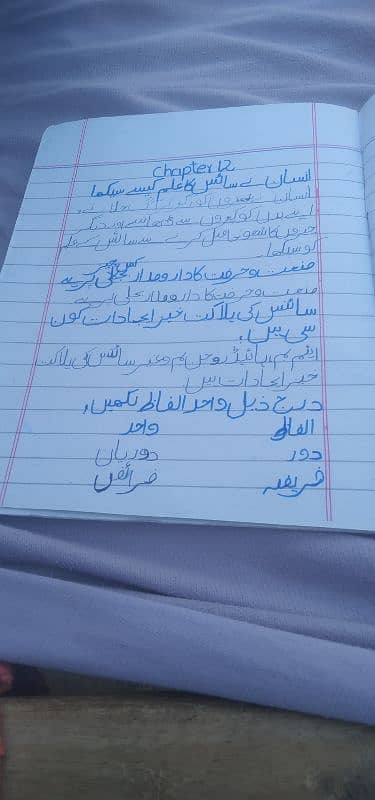 Chapter 12
انسان نے سائنس کا علم کیسے سیکھا
انسان نے
اور دیگر
سے سائنس کے علم
کو سیکھا۔
صنعت و حرفت کا دارومدار کس چیز پر ہے
صنعت و حرفت کا دارومدار بجلی پر ہے
سائنس کی ہلاکت خیز ایجادات کون
سی ہیں،
ایٹم بم، ہائیڈروجن بم وغیرہ سائنس کی ہلاکت
خیز ایجادات ہیں
درج ذیل واحد الفاظ لکھیں،
الفاظ واحد
دور دوریاں
فریضہ فرائض